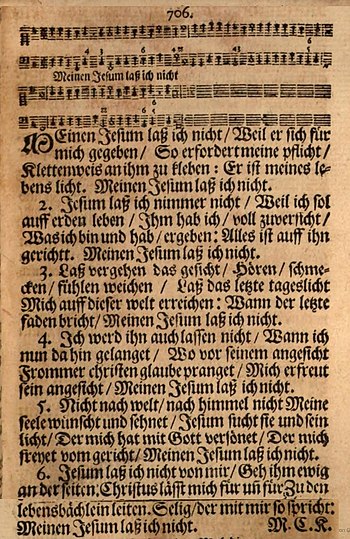 706.
Meinen Jesum laß ich nicht
MEinen Jesum laß ich nicht/ Weil er sich für
mich gegeben/ So erfordert meine pflicht/
Klettenweis an ihm zu kleben: Er ist meines le-
bens licht. Meinen Jesum laß ich nicht.
2. Jesum laß ich nimmer nicht/ Weil ich sol
auff erden leben/ Ihm hab ich/ voll zuversicht/
Was ich bin und hab/ ergeben: Alles ist auff ihn
gerichtt. Meinen Jesum laß ich nicht.
3. Laß vergehen das gesicht/ Hören/ schme-
cken/ fühlen weichen/ Laß das letzte tageslicht
Mich auff dieser welt erreichen: Wann der letzte
faden bricht/ Meinen Jesum laß ich nicht.
4. Ich werd ihn auch lassen nicht/ Wann ich
nun da hin gelanget/ Wo vor seinem angesicht
Frommer christen glaube pranget/ Mich erfreut
sein angesicht/ Meinen Jesum laß ich nicht.
5. Nicht nach welt/ nach himmel nicht Meine
seele wünscht und sehnet/ Jesum sucht sie und sein
licht/ Der mich hat mit Gott versönet/ Der mich
freyet vom gericht/ Meinen Jesum laß ich nicht.
6. Jesum laß ich nicht von mir/ Geh ihm ewig
an der seiten: Christus lässt mich für uñ für Zu den
lebensbächlein leiten. Selig/ der mit mir so spricht:
Meinen Jesum laß ich nicht. M. C. K.